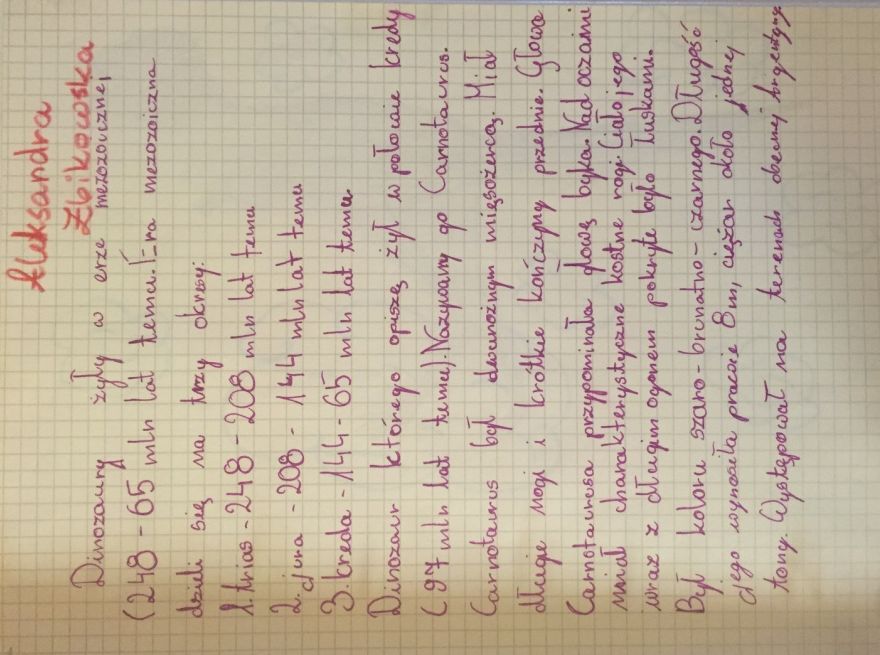 Aleksandra
Zbikowska
Dinozaury żyły w erze mezozoicznej
(248 - 65 mln lat temu. Era mezozoiczna
dzieli się na trzy okresy:
1. trias - 248 - 208 mln lat temu
2. jura - 208 - 144 mln lat temu
3. kreda - 144 - 65 mln lat temu.
Dinozaur którego opiszę żył w połowie kredy
(97 mln lat temu). Nazywamy go Carnotaurus.
Carnotaurus był dwunożnym mięsożercą. Miał
długie nogi i krótkie kończyny przednie. Głowa
Carnotaurusa przypominała głowę byka. Nad oczami
miał charakterystyczne kostne rogi. Ciało jego
wraz z długim ogonem pokryte było łuskami.
Był koloru szaro-brunatno-czarnego. Długość
jego wynosiła prawie 8m, ciężar około jednej
tony. Występował na terenach obecnej Argentyny